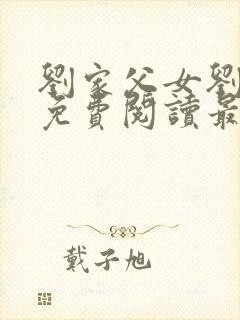 劉家父女劉
免費閱讀最
戴子旭